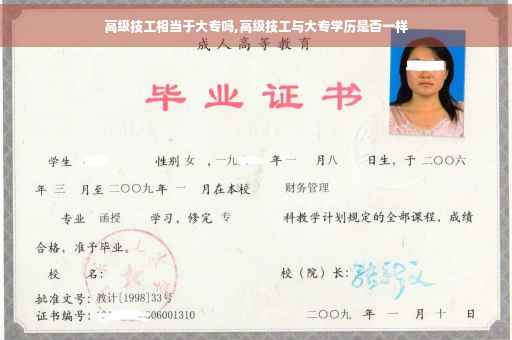 高级技工相当于大专吗,高级技工与大专学历是否一样
成人高等教育
毕业证书
学生 性别 女 ,一九 年 一 月 八 日生，于 二〇〇六
年 三 月至 二〇〇九 年 一 月在本校 财务管理
专业 函授 学习，修完 专 科教学计划规定的全部课程，成绩
合格，准予毕业。
校 名： 校（院）长：
批准文号：教计[1998]33号
证书编号： 06001310 二〇〇九 年 一 月 十 日